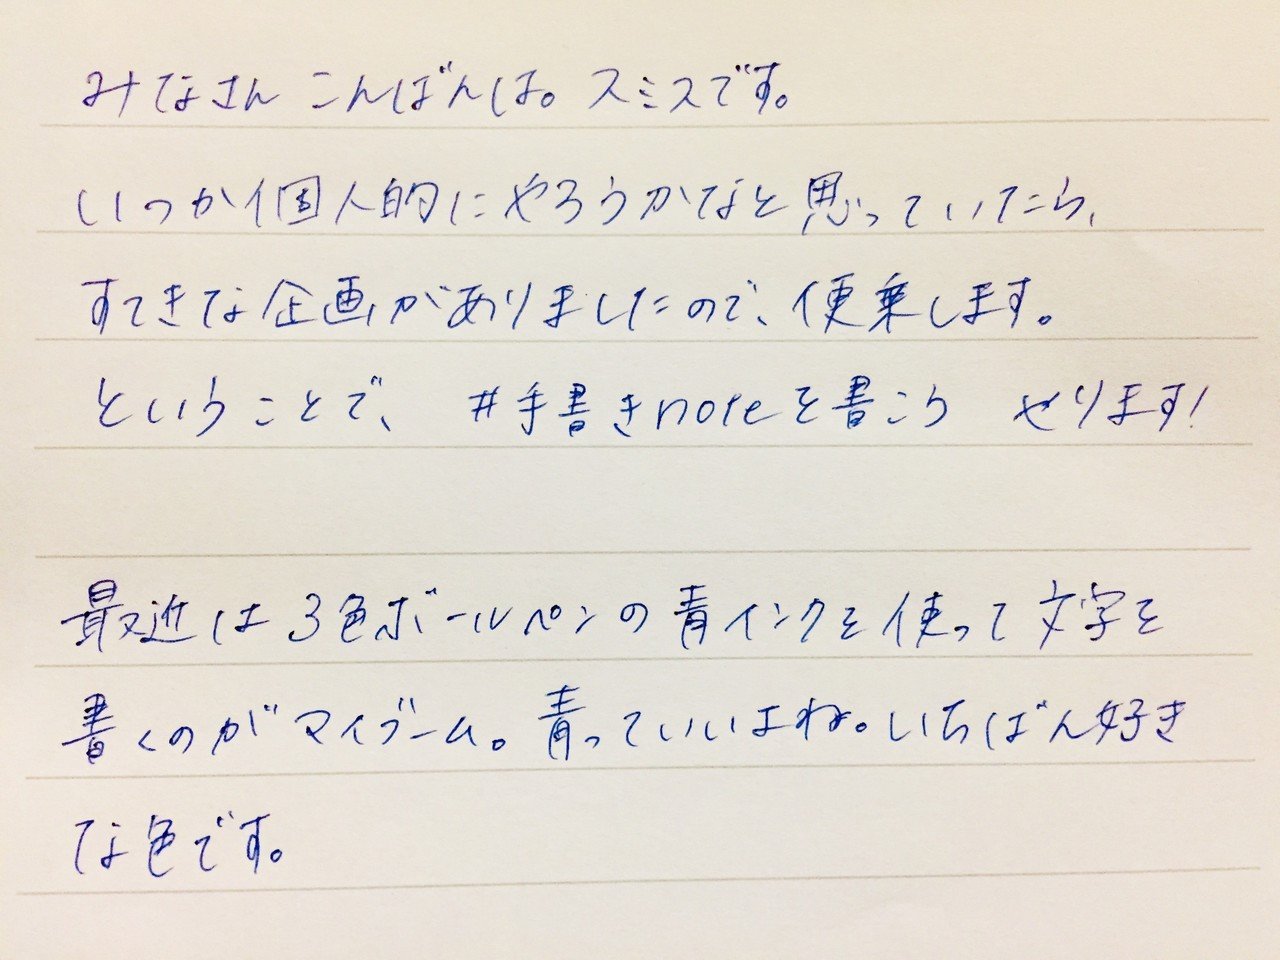 みなさん こんばんは。スミスです。
いつか個人的にやろうかなと思っていたら、
すてきな企画がありましたので、便乗します。
ということで、 #手書きnoteを書こう やります!
最近は3色ボールペンの青インクを使って文字を
書くのがマイブーム。青っていいよね。いちばん好き
な色です。